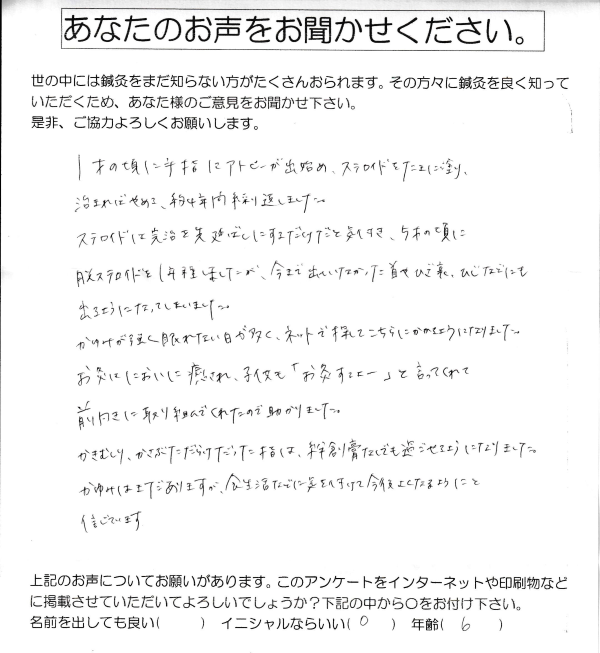 あなたのお声をお聞かせください。
世の中には鍼灸をまだ知らない方がたくさんおられます。その方々に鍼灸を良く知って
いただくため、あなた様のご意見をお聞かせ下さい。
是非、ご協力よろしくお願いします。
1才の頃に手指にアトピーが出始め、ステロイドをたまに塗り、
治まればやめて、約4年間繰り返しました。
ステロイドは完治を先延ばしにするだけだと気付き、5才の頃に
脱ステロイドを1年程しましたが、今まで出ていなかった首やひざ裏、ひじなどにも
出るようになってしまいました。
かゆみが強く眠れない日が多く、ネットで探してこちらにかかるようになりました。
お灸はにおいに癒され、子供も「お灸するよー」と言ってくれて
前向きに取り組んでくれたので助かりました。
かきむしり、かさぶただらけだった指は、絆創膏なしでも過ごせるようになりました。
かゆみはまだありますが、食生活などに気を付けて今後よくなるようにと
信じています
上記のお声についてお願いがあります。このアンケートをインターネットや印刷物など
に掲載させていただいてよろしいでしょうか？下記の中から○をお付け下さい。
名前を出しても良い( ) イニシャルならいい( ○ ) 年齢( 6 )